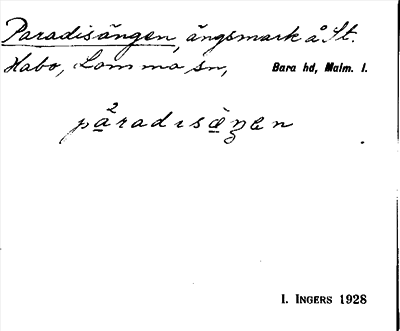 Paradisängen, ängsmark å St.
Habo, Lomma sn, Bara hd, Malm. l.
pa²radisæ̀ŋen
I. INGERS 1928